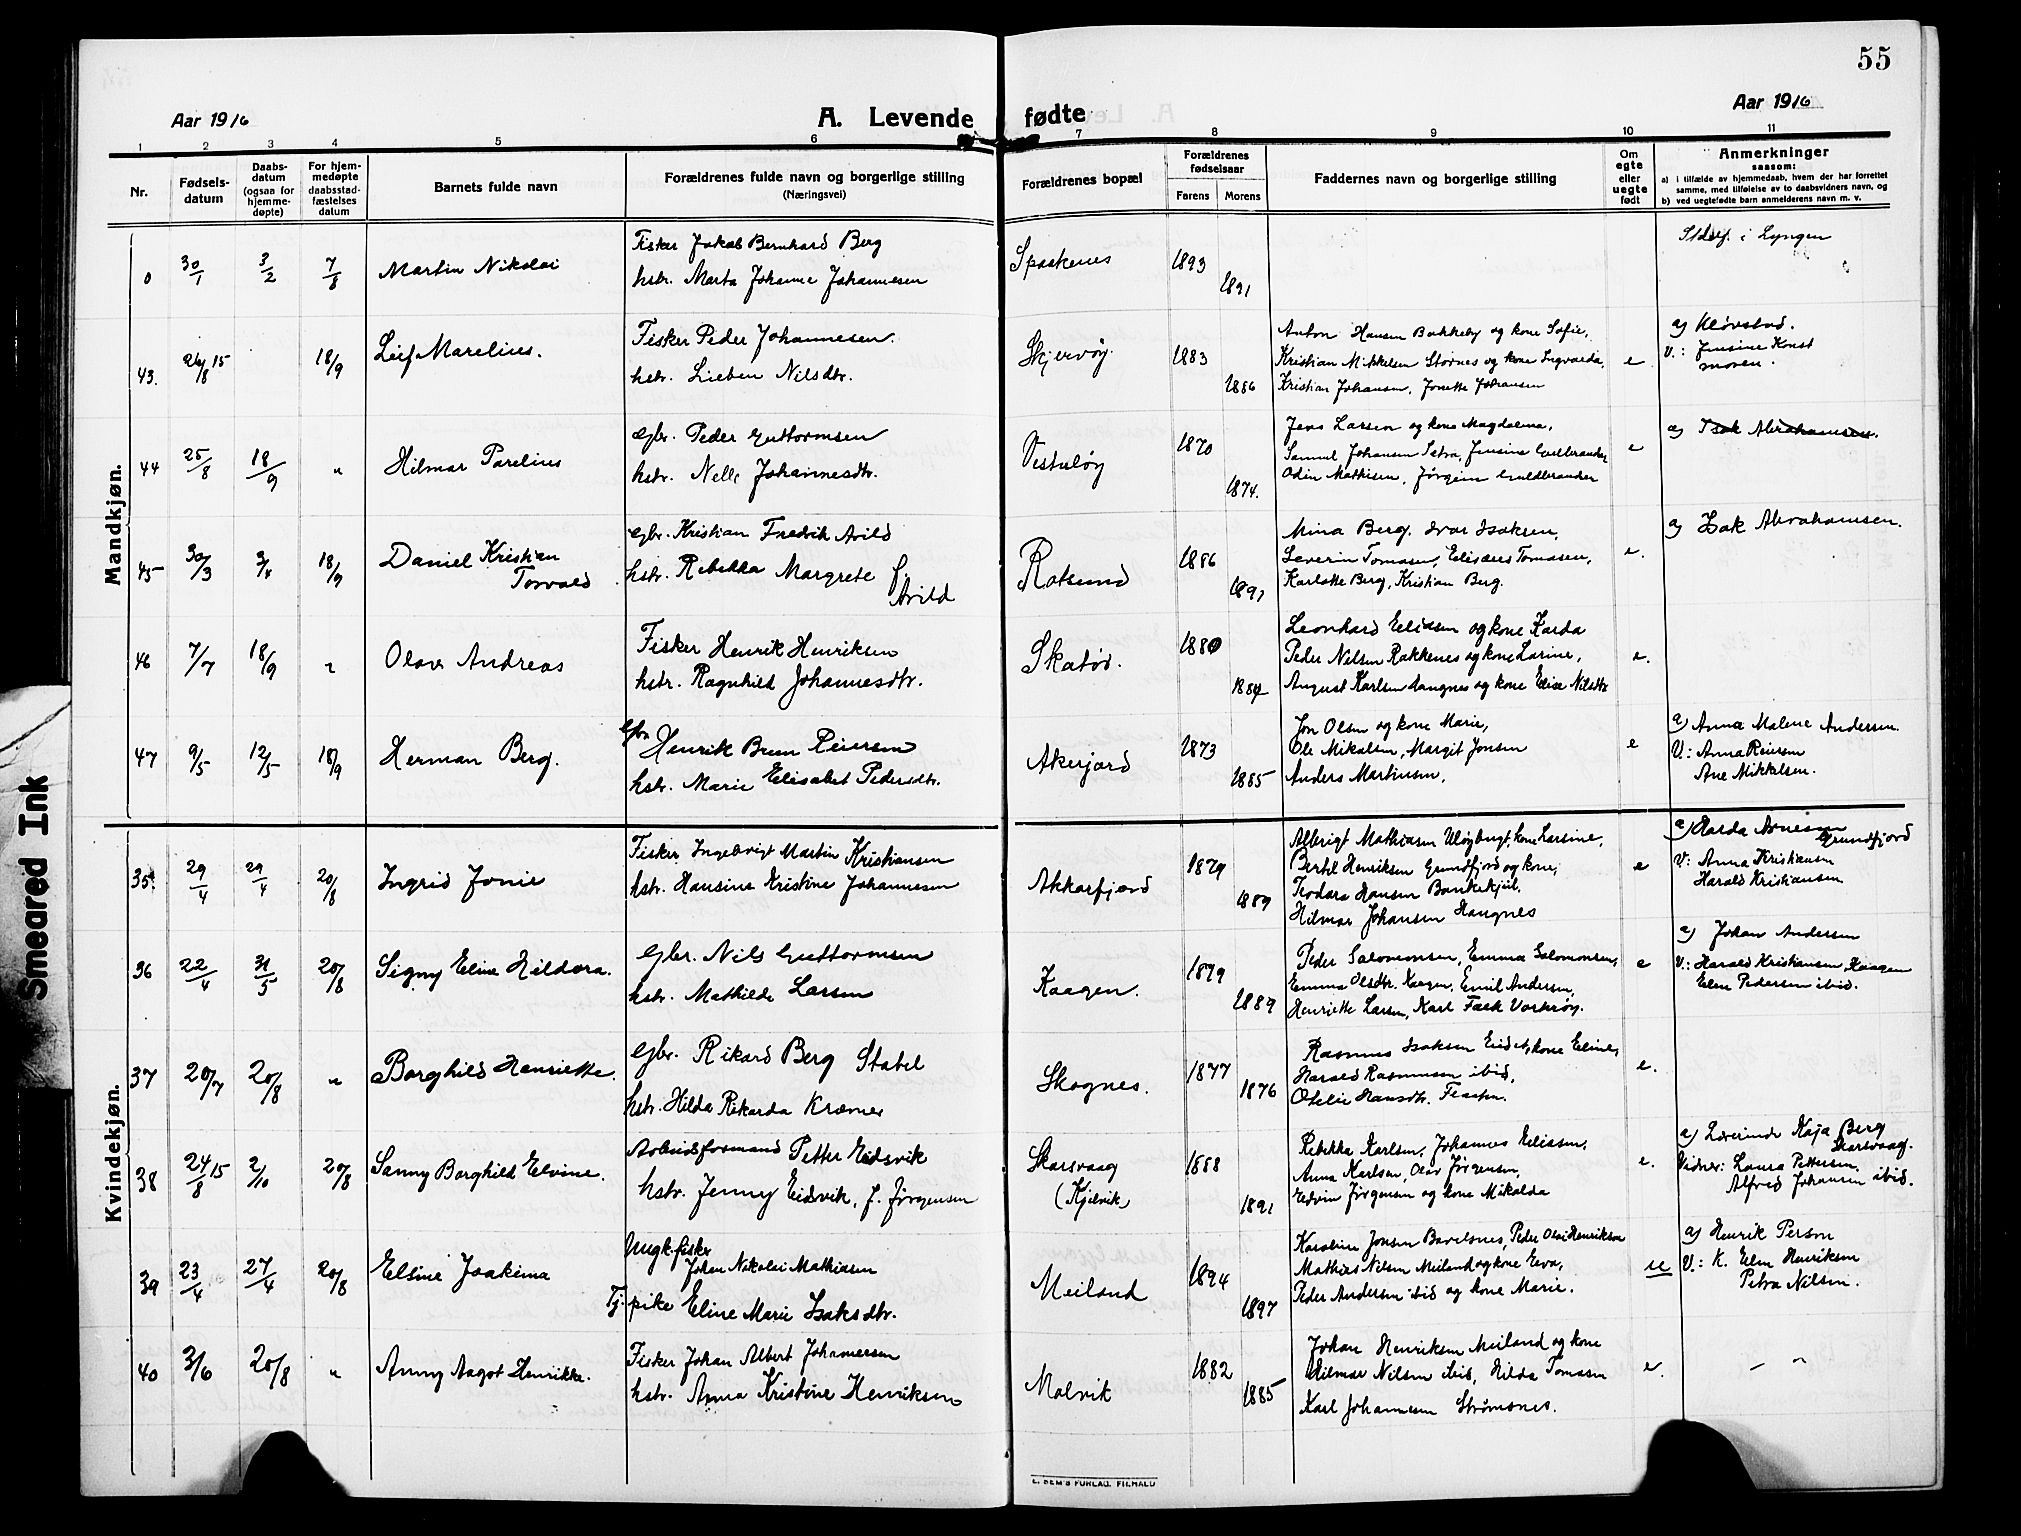 55
Aar 1916
A. Levende fødte
Aar 1916
1 2 3 4 5 6 7 8 9 10 11
Nr.
Fødsels-
datum
Daabs-
datum
(ogsaa for
hjemme-
døpte)
For hjem-
medøpte
daabsstad-
fæstelses
datum
Barnets fulde navn
Forældrenes fulde navn og borgerlige stilling
(Næringsvei)
Forældrenes bopæl
Forældrenes
fødselsaar
Farens Morens
Faddernes navn og borgerlige stilling
Om
egte
eller
uegte
født
Anmerkninger
saasom:
a) i tilfælde av hjemmedaab, hvem der har forrettet
samme, med tilføielse av to daabsvidners navn, og
b) ved uegtefødte barn anmelderens navn m. v.
Mandkjøn.
0 30/1 3/2 7/8 Martin Nikolai
Fisker Jakob Bernhard Berg
hstr. Marta Johanne Johannesen
Spaakenes 1893 1891
i Lyngen
43. 26/8 15 18/9 Leif Marelius.
Fisker Peder Johannesen.
hstr. Lieben Nilsdtr.
Skjervøy 1883 1886
Anton Hansen Bakkeby og kone Sofie,
Kristian Mikkelsen Stornes og kone Ingvarda,
Kristian Johansen, Jonette Johansen
e
a) Kløvstad.
V.: Jensine Konst
moren.
44 25/8 18/9 " Hilmar Parelius
Gbr. Peder Guttormsen
hstr. Nelle Johannesdtr.
Vesterløy 1870 1874.
Jens Larsen og kone Magdalena,
Samuel Johansen Setra, Jensine Guldbrandsen
Odin Mathisen, Jørgine Guldbrandsen
e
a) Isak Abrahamsen.
45 30/3 3/4 18/9 Daniel Kristian
Torvald
Gbr. Kristian Fredrik Arild
hstr. Rebekka Margrete f.
Arild
Rotsund 1886 1891
Mina Berg, Ivar Isaksen,
Severin Tomasen, Elisæus Tomasen,
Karlotte Berg, Kristian Berg.
e.
a) Isak Abrahamsen.
46 7/7 18/9 " Olav Andreas
Fisker Henrik Henriksen
hstr. Ragnhild Johannesdtr.
Skatør. 1880 1884
Leonhard Eliasen og kone Harda
Peder Nilsen Rakkenes og kone Larine,
August Karlsen Haugnes og kone Elise Nilsdtr
e.
47 9/5 12/5 18/9 Herman Berg.
Gbr Henrik Bruun Peiersen
hstr. Marie Elisabet Pedersdtr.
Akerjord 1873 1885
Jon Olsen og kone Marie,
Ole Mikalsen, Margit Jonsen
Anders Martinsen,
e
a) Anna Malene Andersen.
V.: Anna Reiersen
Ane Mikkalsen.
Kvindekjøn.
35. 29/4 29/4 20/8 Ingrid Jonie
Fisker Ingebrigt Martin Kristiansen
hstr. Hansine Kristine Johannesen
Akkarfjord 1879 1889
Albrigt Mathisen Uløybugt, kone Larsine,
Bertel Henriksen Grundfjord og kone,
Teodara Hansen Bankekjeil,
Hilmar Johansen Haugnes
e
a) Harda Arnesen
Grundfjord
V: Anna Kristiansen
Harald Kristiansen
36 22/4 31/5 20/8 Signy Eline Hildora.
Gbr. Nils Guttormsen
hstr. Mathilde Larsen
Kaagen. 1879 1889
Peder Salomonsen, Emma Salomonsen,
Emma Olsdtr. Kaagen, Emil Andersen,
Henriette Larsen, Karl Falk Vorterøy.
e
a) Johan Andersen
V.: Harald Kristiansen, Kaagen
Elen Pedersen ibid.
37 20/7 20/8 " Borghild Henriette.
Gbr. Rikard Berg Stabel
hstr. Hilda Rikarda Kræmer
Skognes. 1877 1876
Rasmus Isaksen Eidet, kone Eline,
Harald Rasmussen ibid,
Otelie Hansdtr.
e.
38 24/8 15 2/10 20/8 Sanny Borghild Elvine.
Arbeidsformand Petter Eidsvik
hstr. Jenny Eidvik, f. Jørgensen
Skarsvaag
(Kjelvik) 1888 1891
Rebekka Karlsen, Johannes Eliasen,
Anna Karlsen, Olav Jørgensen,
Edvin Jørgensen og kone Mikalda
e.
a) Lærerinde Kaja Berg
Skarsvaag.
Vidner: Laura Pettersen,
Alfred Johansen ibid.
39 23/4 27/4 20/8 Elline Joakima
Ungk. fisker
Johan Nikolai Mathisen
Tj. pike Eline Marie Isaksdtr.
Meiland 1894 1897
Karoline Jonsen Bavelsnes, Peder Olai Henriksen
Mathias Nilsen Meiland og kone Eva,
Peder Andersen ibid og kone Marie.
u
a) Henrik Person
V.: K. Elen Henriksen
Petra Nilsen.
40 3/6 20/8 " Anny Aagot Henrikke.
Fisker Johan Albert Johannesen
hstr. Anna Kristine Henriksen
Molvik 1882 1885
Johan Henriksen Meiland og kone
Hilmar Nilsen ibid, Hilda Tomasen
Karl Johannesen Strømsnes.
e.
— "
Smeared Ink